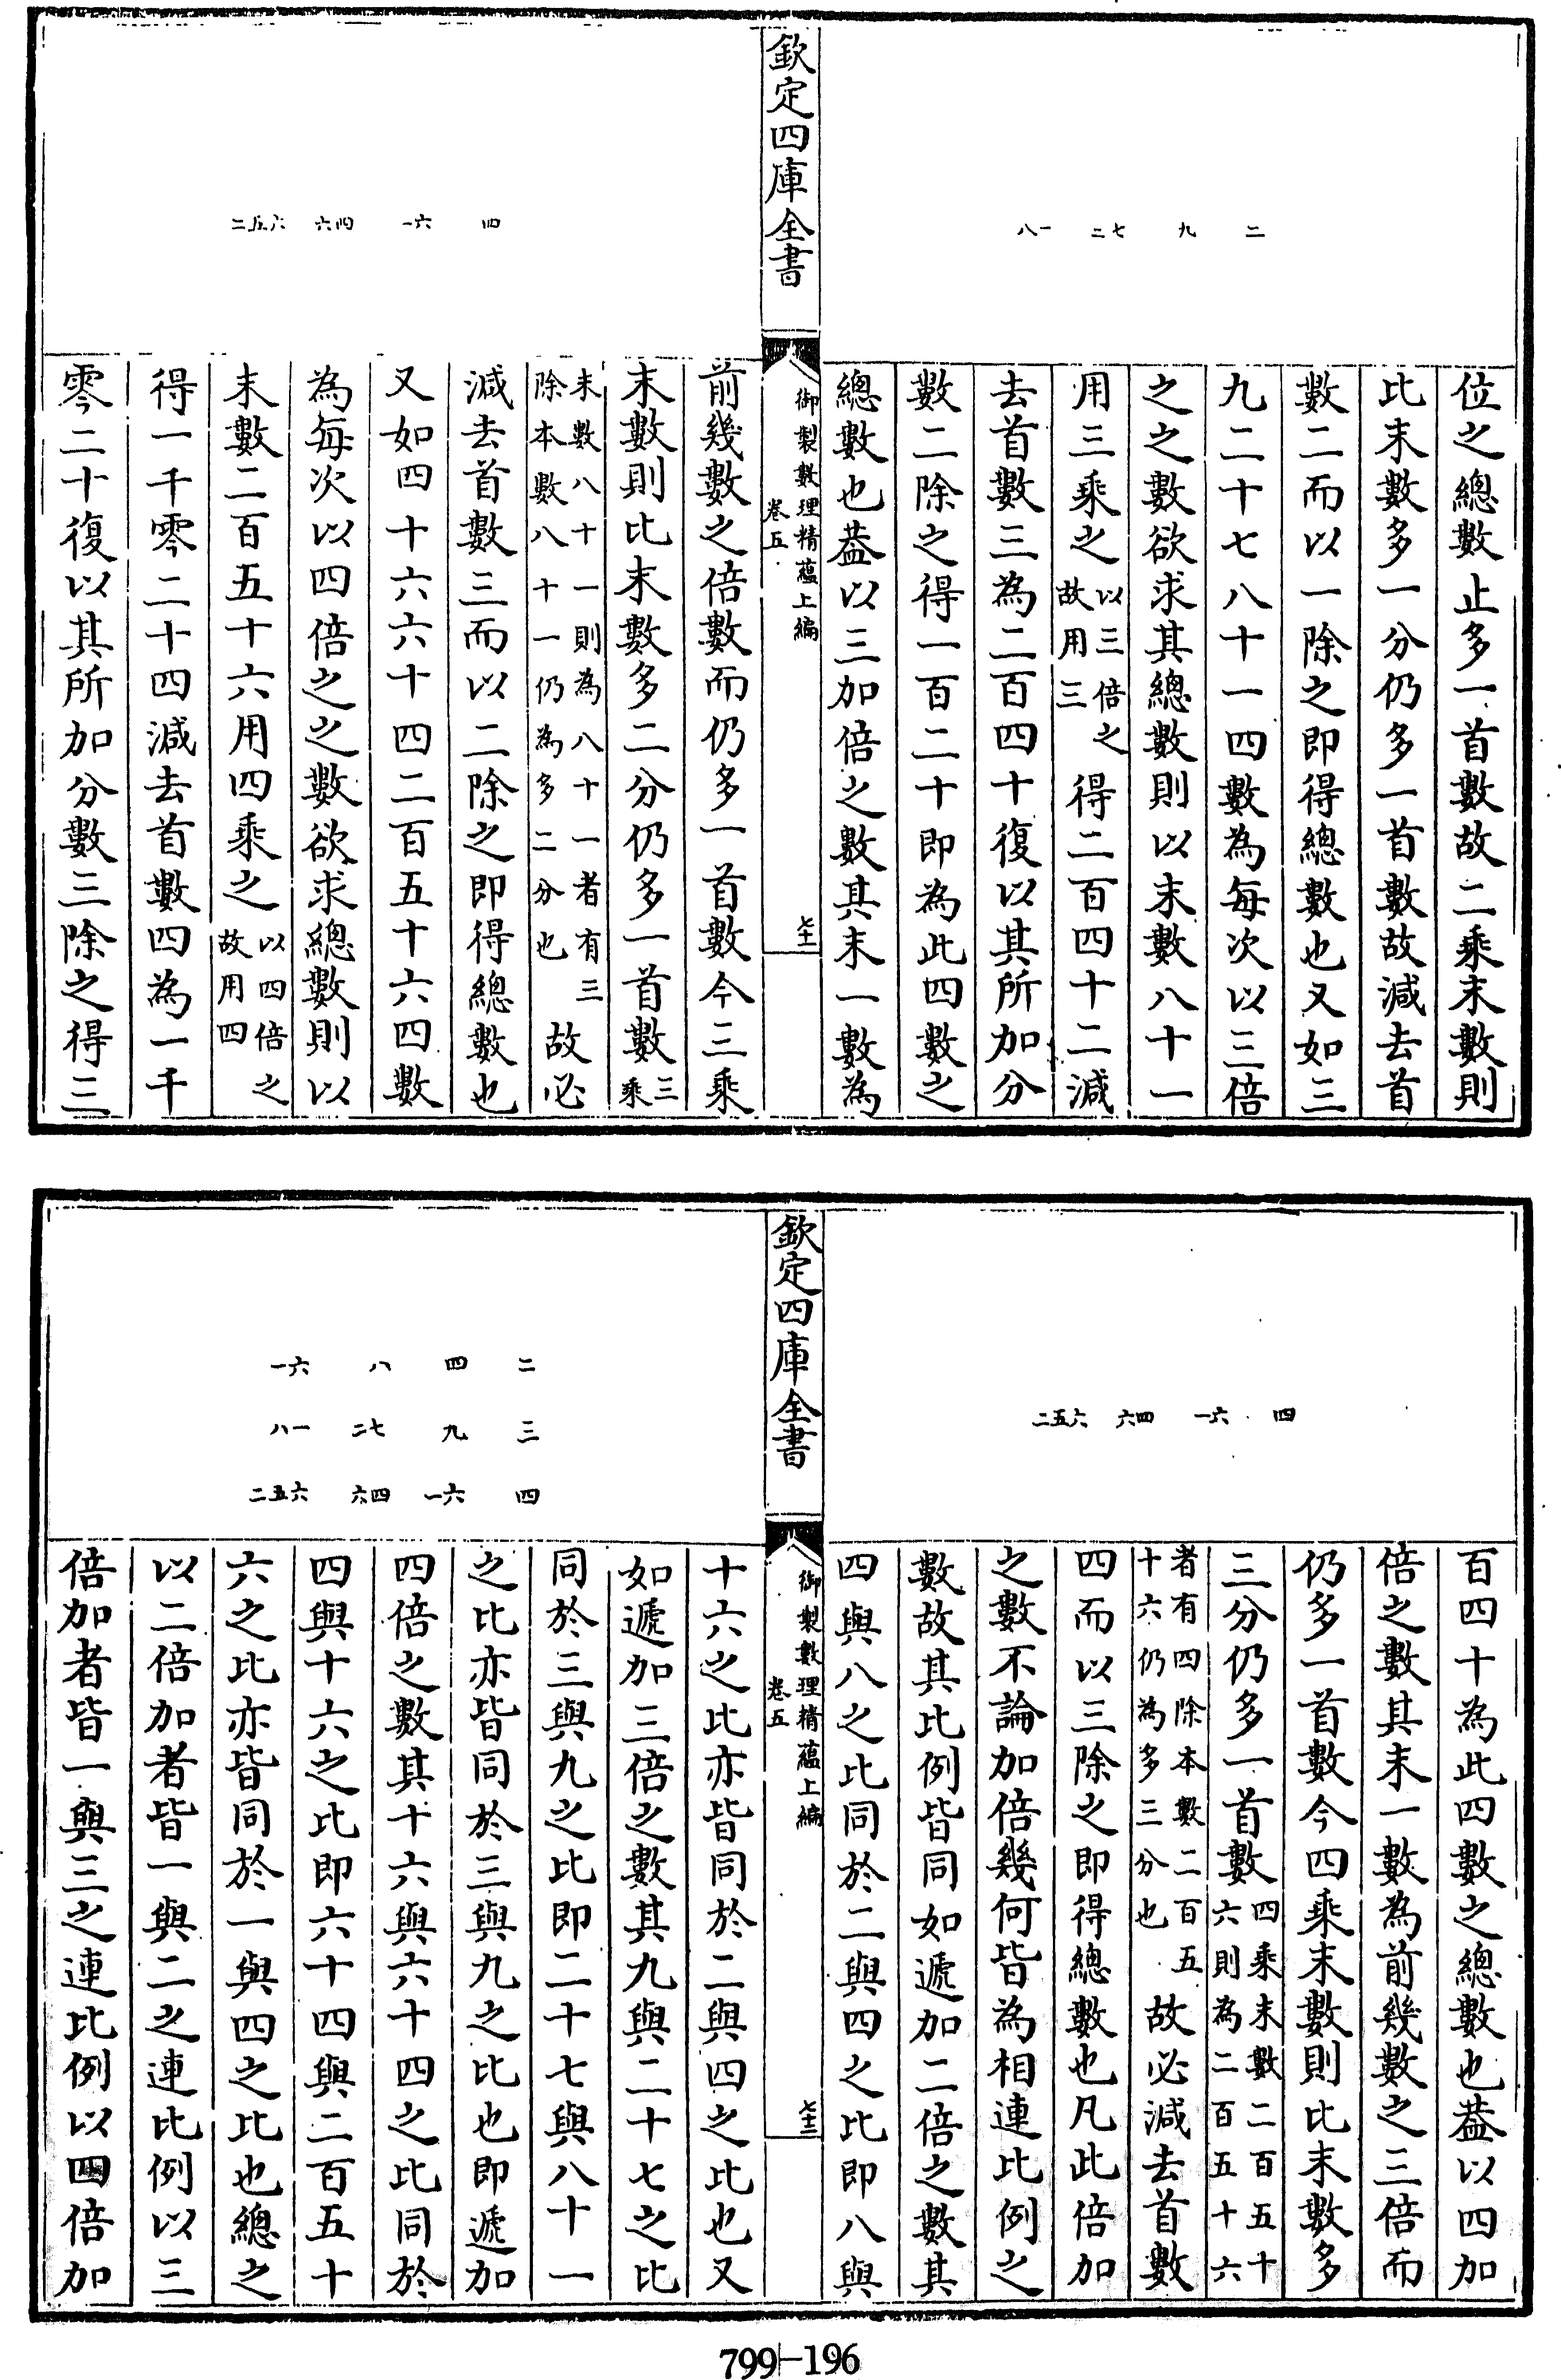 二　九　二七　八一
位之總數止多一首數故二乘末數則
比末數多一分仍多一首數故減去首
數二而以一除之即得總數也又如三
九二十七八十一四數為每次以三倍
之之數欲求其總數則以末數八十一
用三乘之以三倍之故用三得二百四十二減
去首數三為二百四十復以其所加分
數二除之得一百二十即為此四數之
總數也葢以三加倍之數其末一數為
欽定四庫全書
御製數理精蘊上編
卷五
七十一
四　一六　六四　二五六
前幾數之倍數而仍多一首數今三乘
末數則比末數多二分仍多一首數三乘
末數八十一則為八十一者有三除本數八十一仍為多二分也故必
減去首數三而以二除之即得總數也
又如四十六六十四二百五十六四數
為每次以四倍之之數欲求總數則以
末數二百五十六用四乘之以四倍之故用四
得一千零二十四減去首數四為一千
零二十復以其所加分數三除之得三
四　一六　六四　二五六
百四十為此四數之總數也葢以四加
倍之數其末一數為前幾數之三倍而
仍多一首數今四乘末數則比末數多
三分仍多一首數四乘末數二百五十六則為二百五十六
者有四除本數二百五十六仍為多三分也故必減去首數
四而以三除之即得總數也凡此倍加
之數不論加倍幾何皆為相連比例之
數故其比例皆同如遞加二倍之數其
四與八之比同於二與四之比即八與
欽定四庫全書
御製數理精蘊上編
卷五
七十二
二　四　八　一六
三　九　二七　八一
四　一六　六四　二五六
十六之比亦皆同於二與四之比也又
如遞加三倍之數其九與二十七之比
同於三與九之比即二十七與八十一
之比亦皆同於三與九之比也即遞加
四倍之數其十六與六十四之比同於
四與十六之比即六十四與二百五十
六之比亦皆同於一與四之比也總之
以二倍加者皆一與二之連比例以三
倍加者皆一與三之連比例以四倍加
799-196